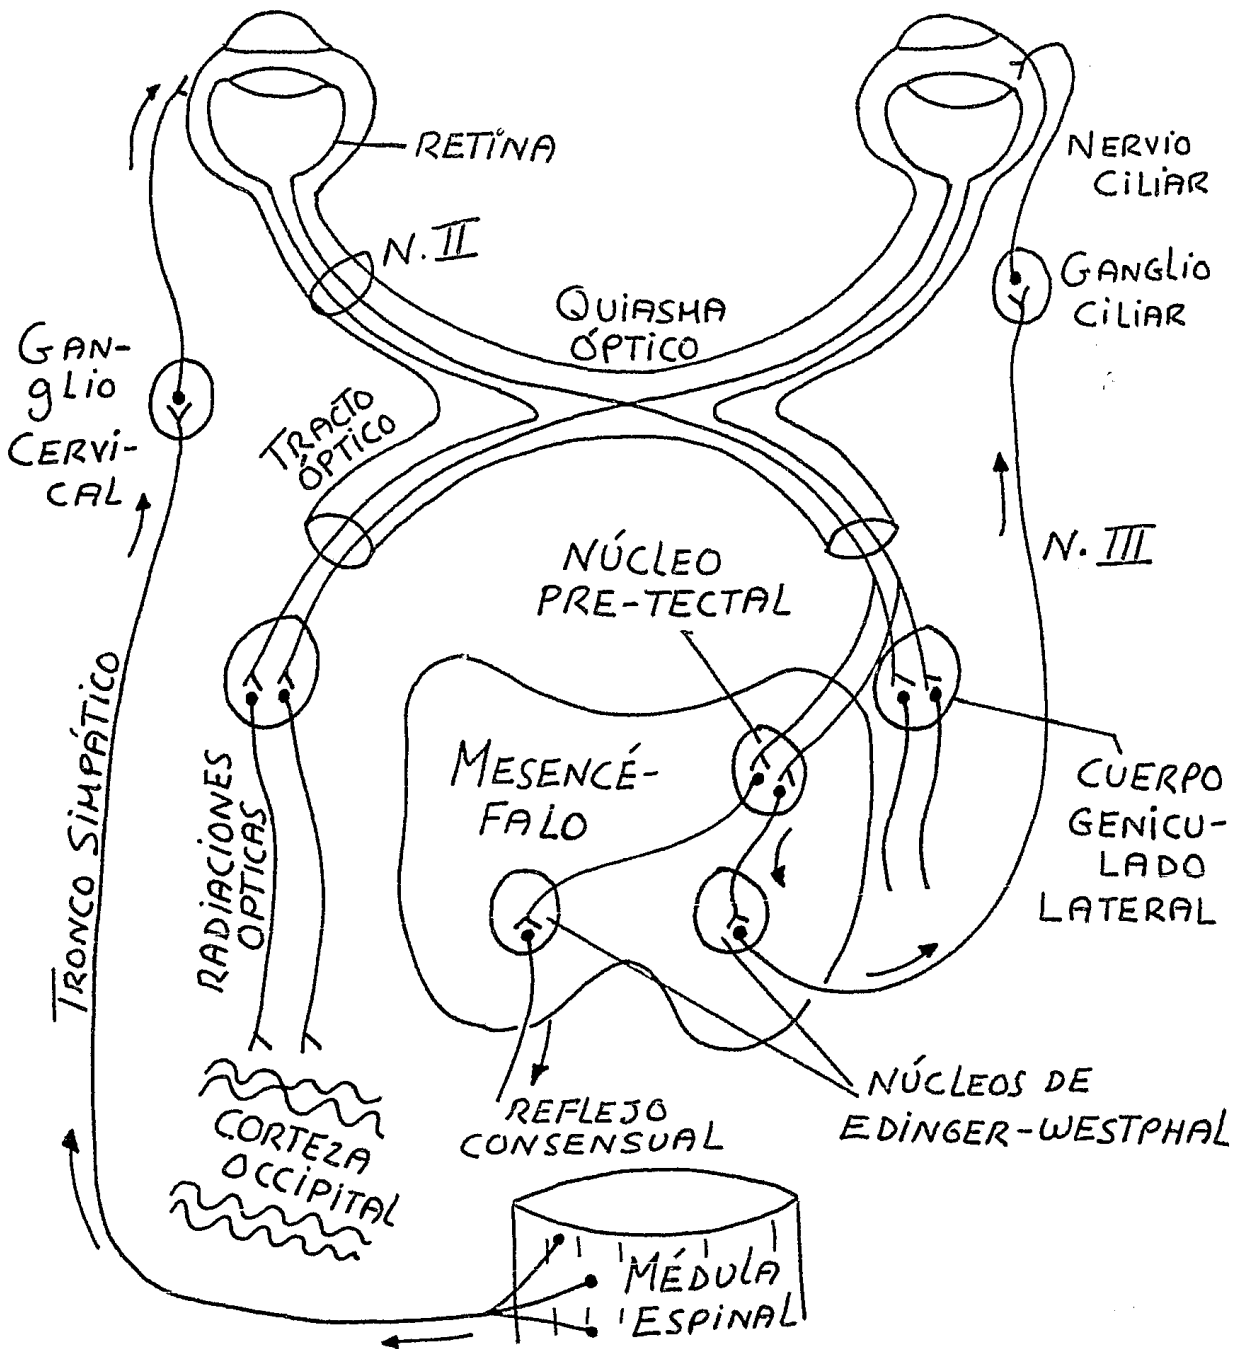 RETINA
NERVIO
CILIAR
N. II
GANGLIO
CILIAR
QUIASMA
ÓPTICO
GAN-
gLio
CERVI-
CAL
TRACTO
ÓPTICO
N. III
NÚCLEO
PRE-TECTAL
TRONCO SIMPÁTICO
RADIACIONES
OPTICAS
MESENCÉ-
FALO
CUERPO
GENICU-
LADO
LATERAL
NÚCLEOS DE
EDINGER-WESTPHAL
REFLEJO
CONSENSUAL
CORTEZA
OCCIPITAL
MÉDULA
ESPINAL